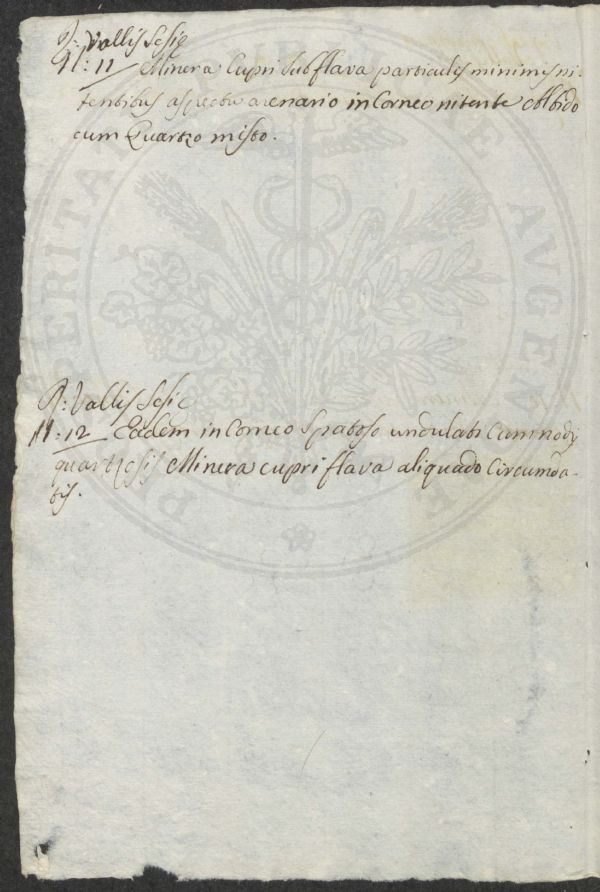 P: Vallis Sesię
N: 11 Minera Cupri subflava particulis minimis ni-
tentibus aspectu arenario in Corneo nitente albido
cum Quartzo misto.
P: Vallis Sesię
N: 12 Eadem in Corneo Spatoso undulato Cum nodis
quartzosis Minera cupri flava aliquado Circumda-
tis.